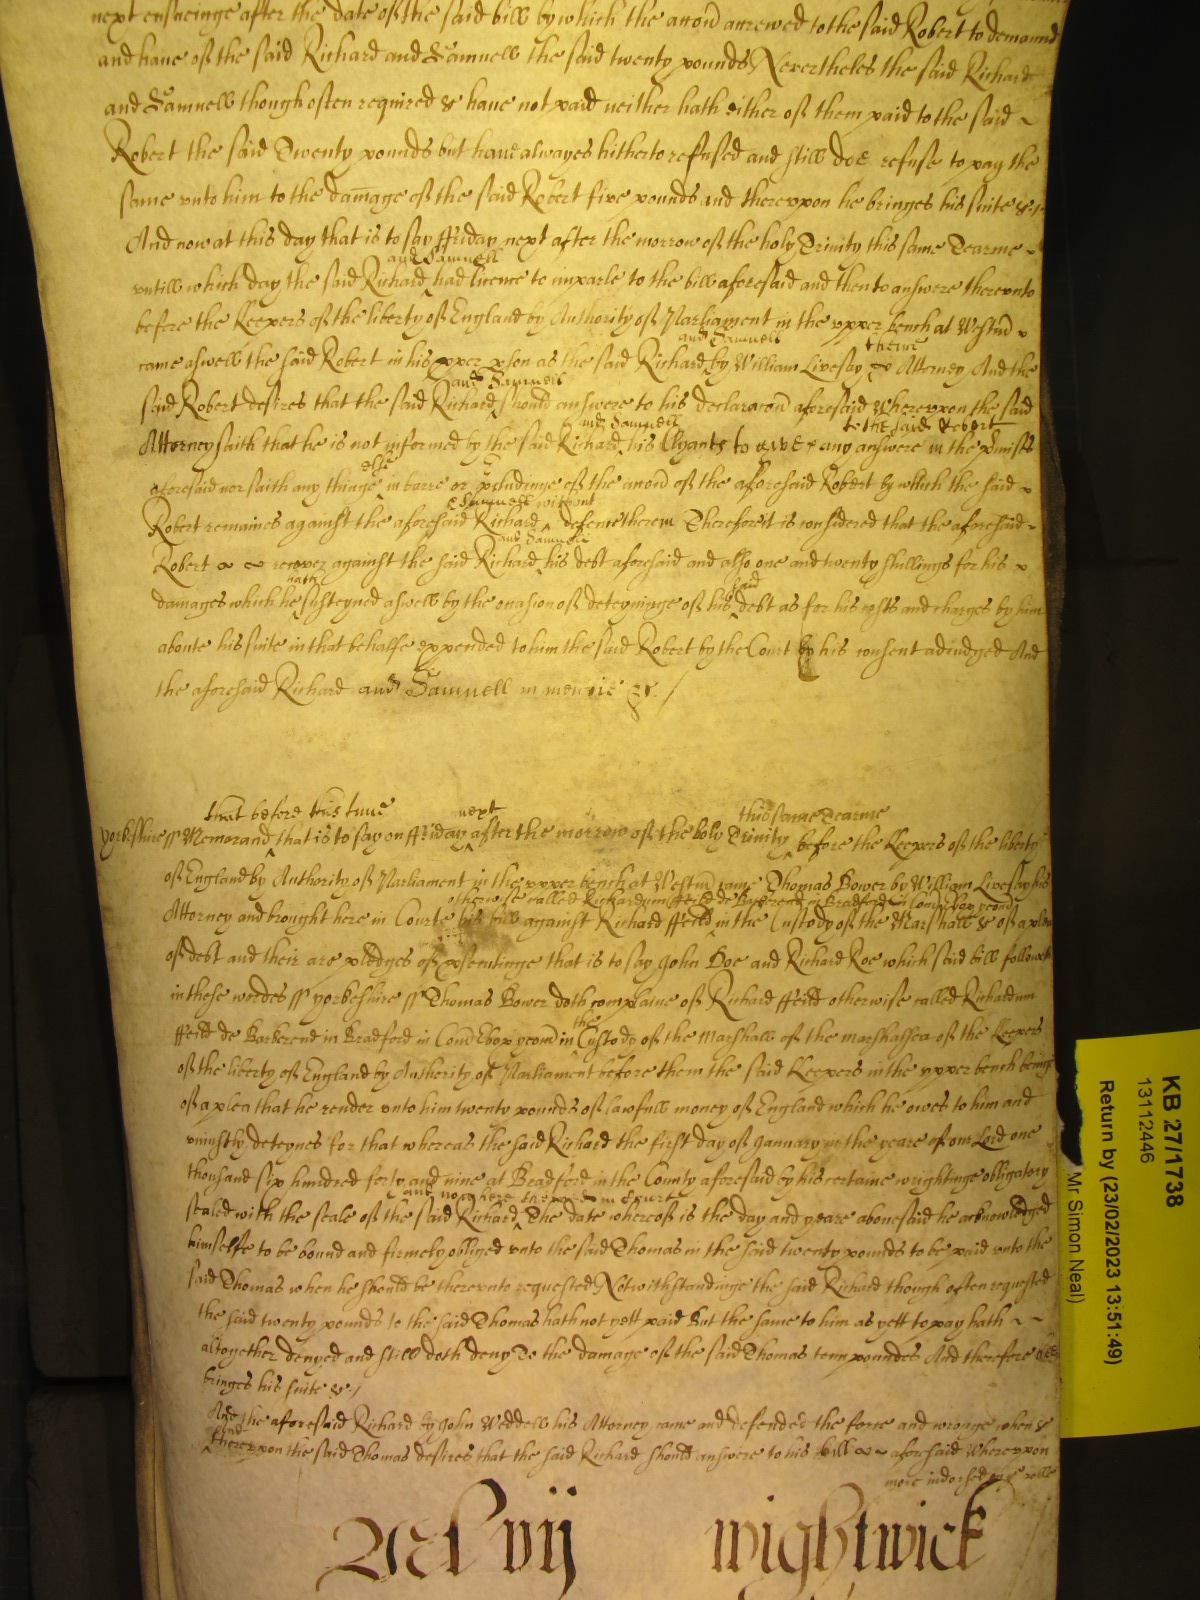 next ensueinge after the date of the said bill by which the accon accrewed to the said Robert to demaund
and haue of the said Richard and Samuell the said twenty pounds Neuertheles the said Richard
and Samuell though often required &c haue not paid neither hath either of them paid to the said ~
Robert the said Twenty pounds but haue alwayes hitherto refused and still doe refuse to pay the
same vnto him to the damage of the said Robert five pounds and therevpon he bringes his suite &c
And now at this day that is to say ffriday next after the morrow of the holy Trinity this same Tearme ~
and Samuell
vntill which day the said Richard had licence to imparle to the bill aforesaid and then to answere therevnto
before the Keepers of the liberty of England by Authority of Parliament in the vpper bench at Westm
and Samuell theire
came aswell the said Robert in his pper pson as the said Richard by William Livesay Attorney And the
and Samuell
said Robert desires that the said Richard should answere to his declaracon aforesaid Wherevpon the said
and Samuell to the said Robert
Attorney saith that he is not informed by the said Richard his Clyants to give any answere in the pmisses
else
aforesaid nor saith any thinge in barre or pcludinge of the accon of the aforesaid Robert by which the said
& Samuell without
Robert remaines against the aforesaid Richard defence therein Therefore it is considered that the aforesaid
and Samuell
Robert recover against the said Richard his debt aforesaid and also one and twenty shillings for his
hath said
damages which he susteyned aswell by the occasion of deteyninge of his debt as for his costs and charges by him
aboute his suite in that behalfe expended to him the said Robert by the Court by his consent adiudged And
the aforesaid Richard and Samuell in mercie &c
that before this time next this same Tearme
Yorkeshire ss Memorand that is to say on ffriday after the morrow of the holy Trinity before the Keepers of the liberty
of England by Authority of Parliament in the vpper bench at Westm came Thomas Bower by William Livesay his
otherwise called Richardum ffeild de Barkerend in Bradford in Com Ebor yeom
Attorney and brought here in Courte his bill against Richard ffeild in the Custody of the Marshall &c of a plea
of debt and their are pledges of psecutinge that is to say John Doe and Richard Roe which said bill followeth
in these wordes ss Yorkeshire ss Thomas Bower doth complaine of Richard ffeild otherwise called Richardum
the
ffeild de Barkerend in Bradford in Com Ebor yeom in Custody of the Marshall of the Marshalsea of the Keepers
of the liberty of England by Authority of Parliament before them the said Keepers in the vpper bench beinge
of a plea that he render vnto him twenty pounds of lawfull money of England which he owes to him and
vniustly deteynes for that whereas the said Richard the first day of January in the yeare of our Lord one
thousand six hundred forty and nine at Bradford in the County aforesaid by his certaine wrightinge obligatory
and now here shewed in Court
sealed with the seale of the said Richard The date whereof is the day and yeare abouesaid he acknowledged
himselfe to be bound and firmely obliged vnto the said Thomas in the said twenty pounds to be paid vnto the
said Thomas when he should be therevnto requested Notwithstandinge the said Richard though often requested
the said twenty pounds to the said Thomas hath not yett paid But the same to him as yett to pay hath ~ ~
altogether denyed and still doth deny To the damage of the said Thomas tenn poundes And therefore hee
bringes his suite &c
And the aforesaid Richard by John Weddell his Attorney came and defended the force and wronge when &c
And
therevpon the said Thomas desires that the said Richard should answere to his bill aforesaid Wherevpon
more indorsed
wightwick
KB 27/1738
13112446
Return by (23/02/2023 13:51:49)
Mr Simon Neal)